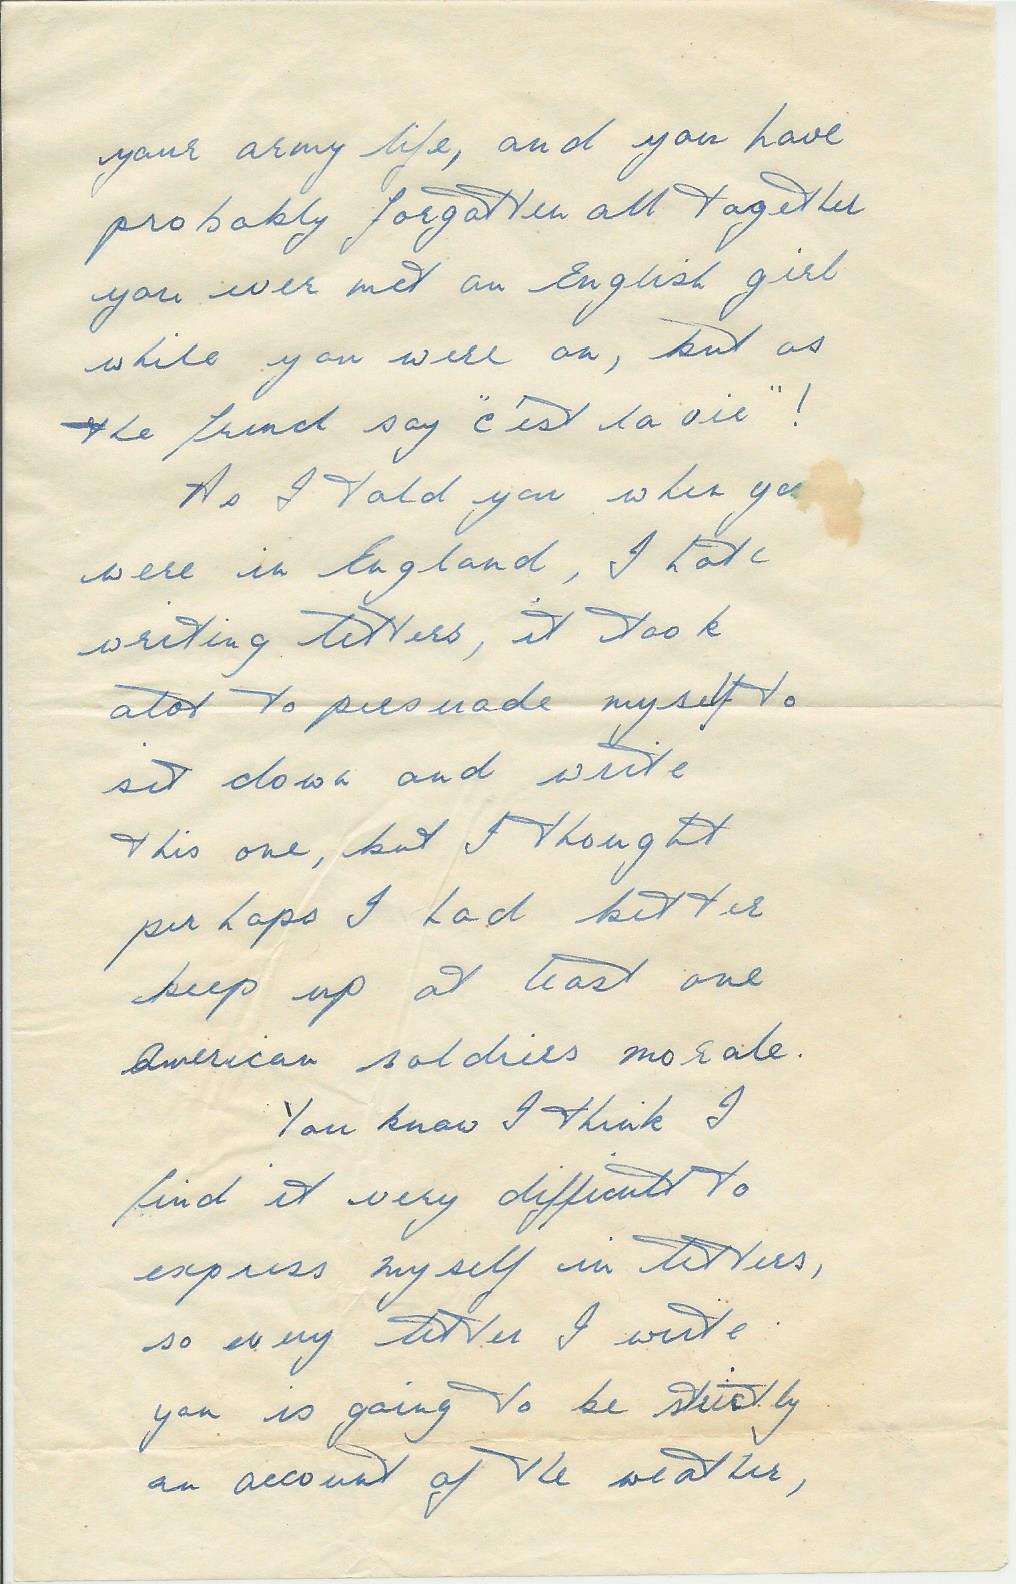 your army life, and you have
probably forgotten all together
you ever met an English girl
while you were on, but as
the french say "c'est la vie"!
As I told you when you
were in England, I hate
writing letters, it took
alot to persuade myself to
sit down and write
this one, but I thought
perhaps I had better
keep up at least one
American soldiers morale.
You know I think I
find it very difficult to
express myself in letters,
so every letter I write
you is going to be strictly
an account of the weather,